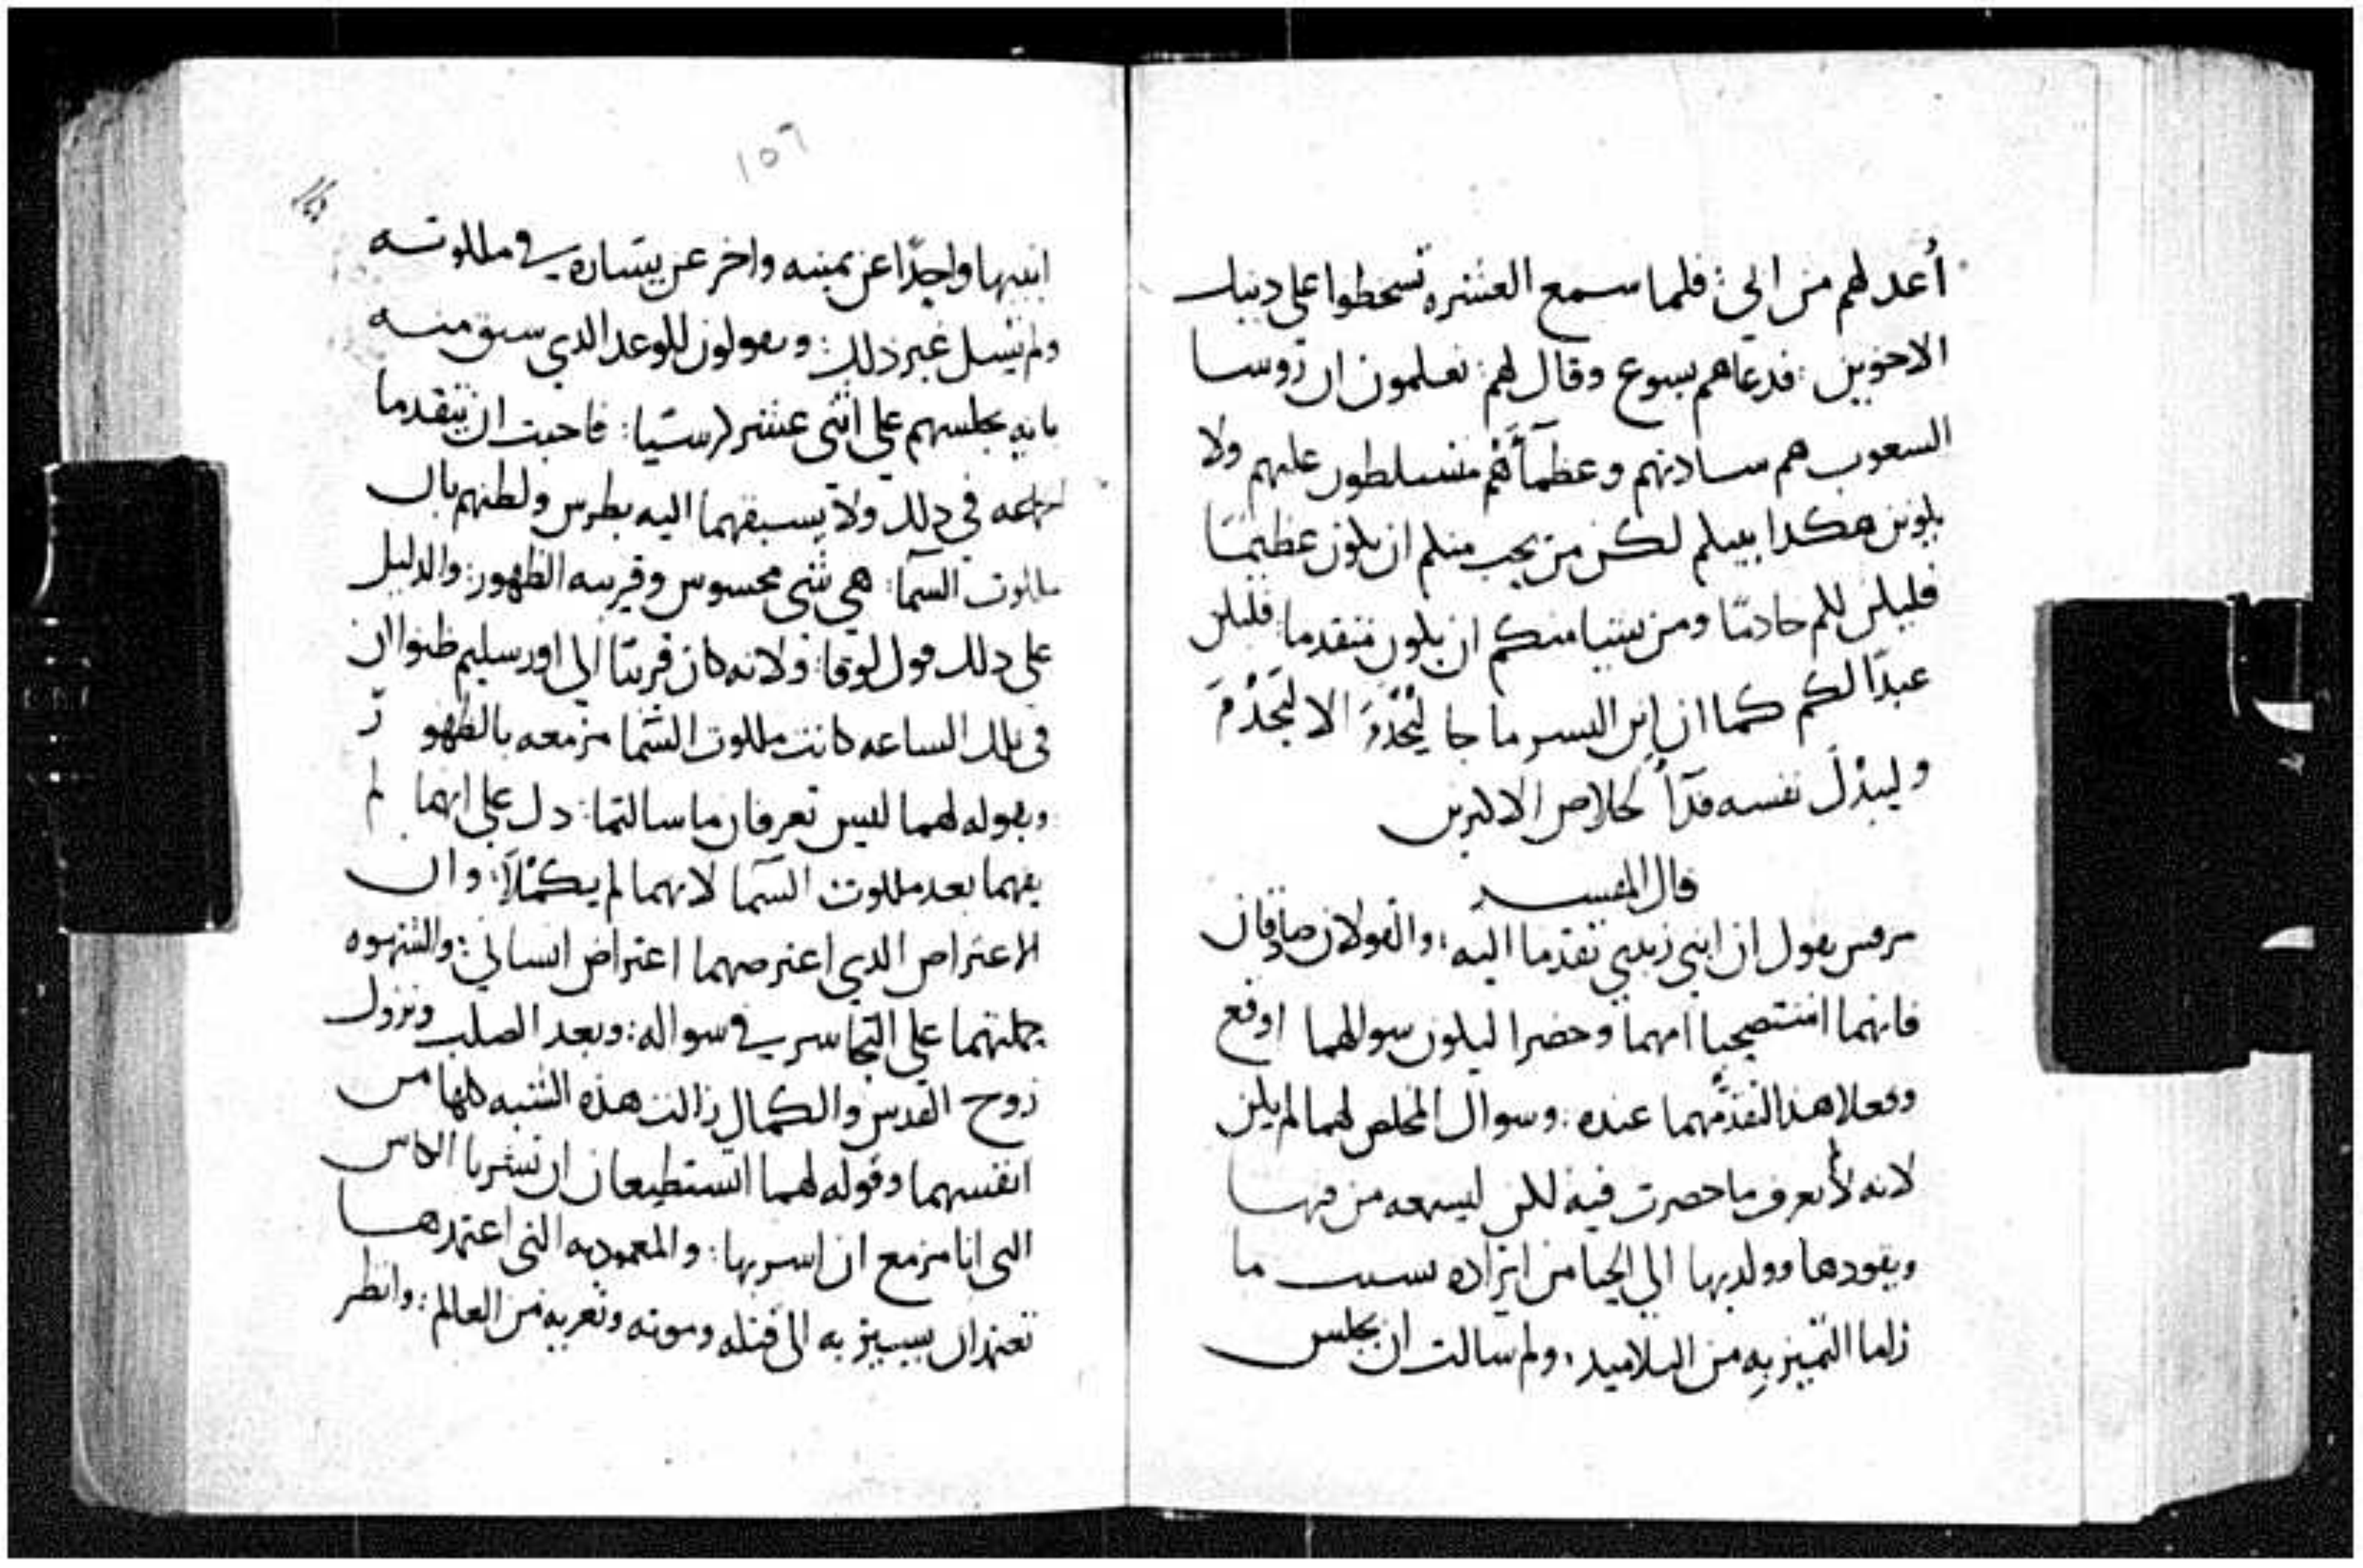 أعد لهم من ابي: فلما سمع العشره تسخطوا على دنيك
الاخوين: فدعاهم يسوع وقال لهم: تعلمون ان روسا
السعوب هم ساداتهم وعظمآأهم متسلطون عليهم ولا
يكونن هكدا بينكم لكن من يحب منكم ان يكون عظيمًا
فليكن لكم خادمًا ومن يشيا منكم ان يكون متقدما فليكن
عبدًا لكم كما ان ابن البسر ما جا ليُخْدَمَ الا ليَخْدُمَ
وليبدُلَ نفسه فدآً لخلاص الاكترين
قال المفسر
مرقس يقول ان ابني زبدي تقدما اليه: والقولان صادقان
فانهما امهما وحضرا ليكون سوالهما اوقع
وفعلا هدا لتقدّمهما عنده: وسوال المخلص لهما لم يكن
لانه لا يعرف ما حضرت فيه لكن ليسمعه من فمها
ويقودها وولديها الى الحيا من ايراده بسبب ما
راما التميز به من التلاميد: ولم سالت ان يجلس
١٥٦
ابنيها واحدًا عن يمينه واخر عن يساره في ملكوته
ولم تسل غير دلك: ويقولون للوعد الدي سبق منه
بانه يجلسهم على اثني عشر كرسيا: فاحبت ان يتقدما
في دلك ولا يسبقهما اليه بطرس ولظنهم بان
ملكوت السمآ: هي شى محسوس وقريبه الظهور: والدليل
على دلك قول لوقا: ولانه كان قريبًا الى اورسليم ظنوا ان
في تلك الساعه كانت ملكوت السما مزمعه بالظهور
وبقوله لهما ليس تعرفان ما سالتما: دل على انهما لم
يفهما بعد ملكوت السمآ لانهما لم يكمُلا: وان
الاعتراض الدي اعترضهما اعتراض انساني: والشهوه
حملتهما على التجاسر في سواله: وبعد الصلب ونزول
روح القدس والكمال زالت هده الشبه كلها من
انفسهما وقوله لهما اتستطيعان ان تشربا الكاس
التى انا مزمع ان اسربها: والمعموديه التى اعتمدها
تعتمدان يشير به الى قتله وموته وتعريه من العالم: وانظر